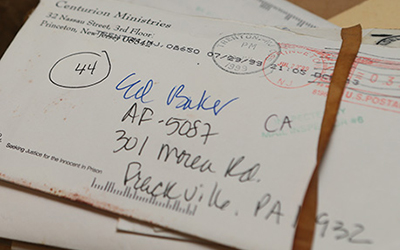 Centurion Ministries
32 Nassau Street, 3rd Floor
Princeton, New Jersey 08542
N.J. 08650 07/29/99
PM
1999
21 05
U.S. POSTAGE
44
Ed Baker
CA
AF-5087
301 Morea Rd.
Frackville, PA 17932
Seeking Justice for the Innocent in Prison